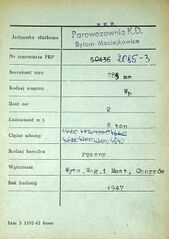 P.K.P.
Jednostka służbowa
Parowozownia K.D.
Bytom-Maciejkowice
Nr inwentarza PKP 50436 2085-3
Szerokość toru 785 mm
Rodzaj wagonu Wp
Ilość osi 2
Ładowność w t 8 ton
Ciężar własny
Rodzaj hamulca ręczny
Wytwórnia Wytw.Wag.i Most. Chorzów
Rok budowy 1947